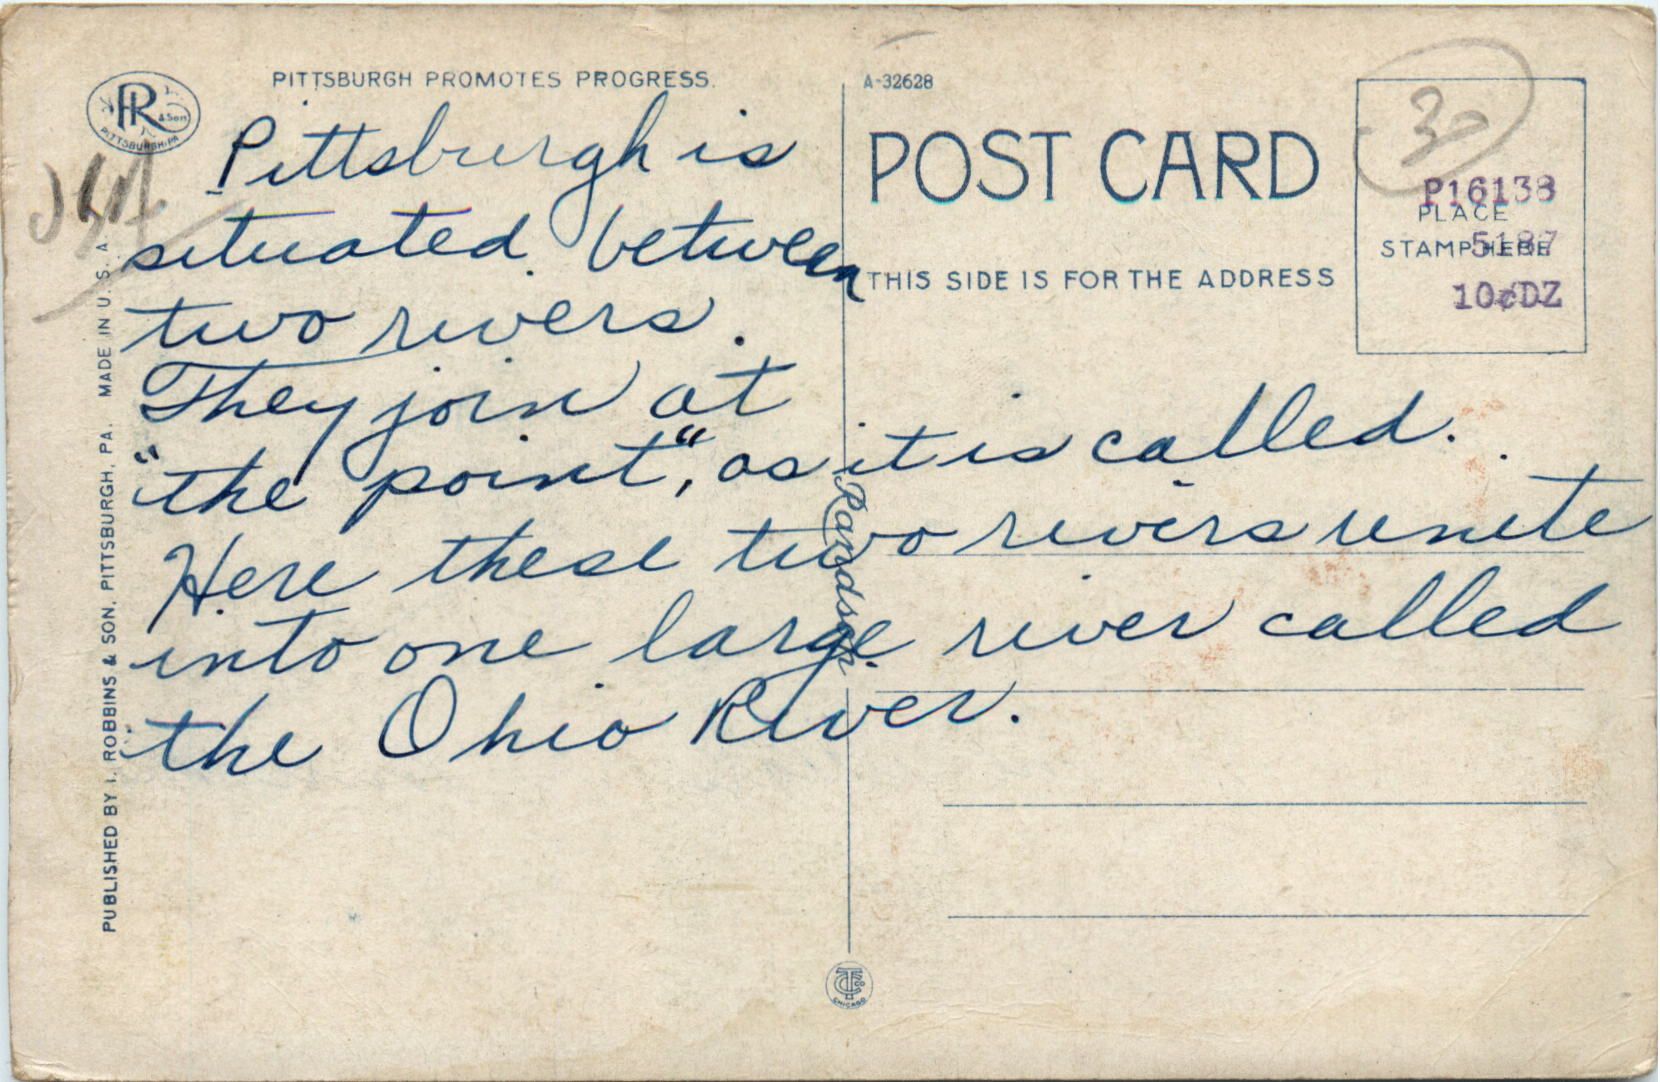 PITTSBURGH PROMOTES PROGRESS.
A-32628
R & Son
PITTSBURGH, PA.
POST CARD
THIS SIDE IS FOR THE ADDRESS
30
P16138
PLACE
STAMP HERE
5187
10¢DZ
Pittsburgh is
situated between
two rivers.
They join at
"the point", as it is called.
Here these two rivers unite
into one large river called
the Ohio River.
Randson
PUBLISHED BY I. ROBBINS & SON, PITTSBURGH, PA. MADE IN U. S. A.
CHICAGO